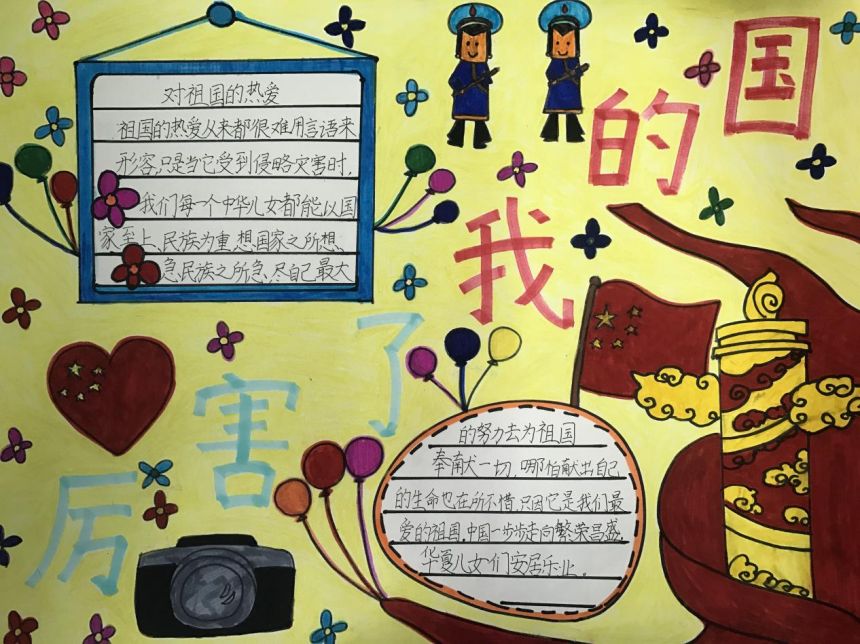 厉害了
我的国
对祖国的热爱
祖国的热爱从来都很难用言语来
形容,只是当它受到侵略灾害时,
我们每一个中华儿女都能以国
家至上、民族为重,想国家之所想,
急民族之所急,尽自己最大
的努力去为祖国
奉献一切,哪怕献出自己
的生命也在所不惜.只因它是我们最
爱的祖国,中国一步步走向繁荣昌盛,
华夏儿女们安居乐业。